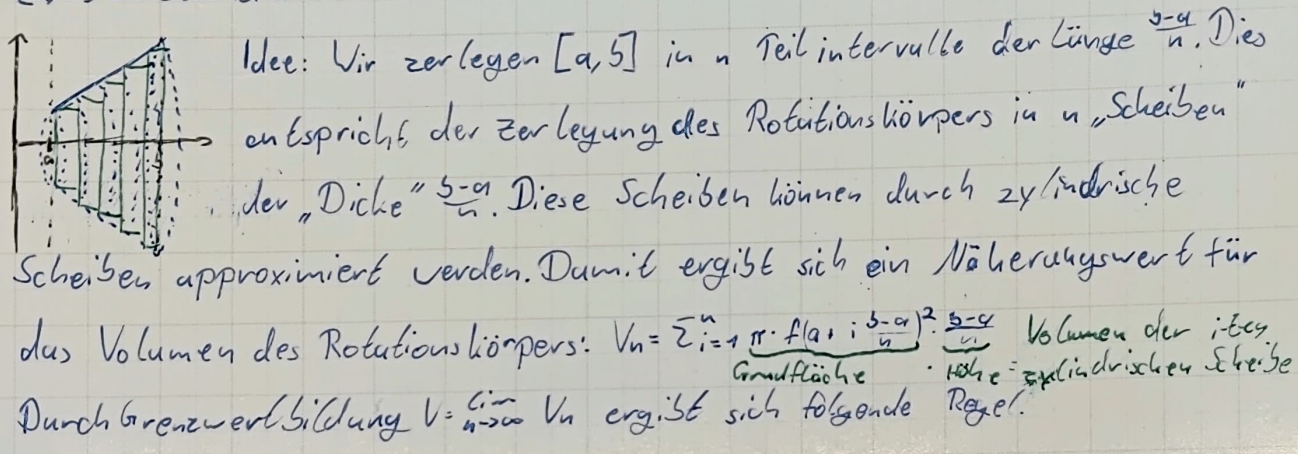 Idee: Wir zerlegen [a,b] in n Teilintervalle der Länge (b-a)/n. Dies
entspricht der Zerlegung des Rotationskörpers in n „Scheiben"
der „Dicke" (b-a)/n. Diese Scheiben können durch zylindrische
Scheiben approximiert werden. Damit ergibt sich ein Näherungswert für
das Volumen des Rotationskörpers: Vn = Σ_{i=1}^{n} π · f(a + i (b-a)/n)² · (b-a)/n Volumen der i-ten
Grundfläche · Höhe = zylindrischen Scheibe
Durch Grenzwertbildung V = lim_{n->∞} Vn ergibt sich folgende Regel.